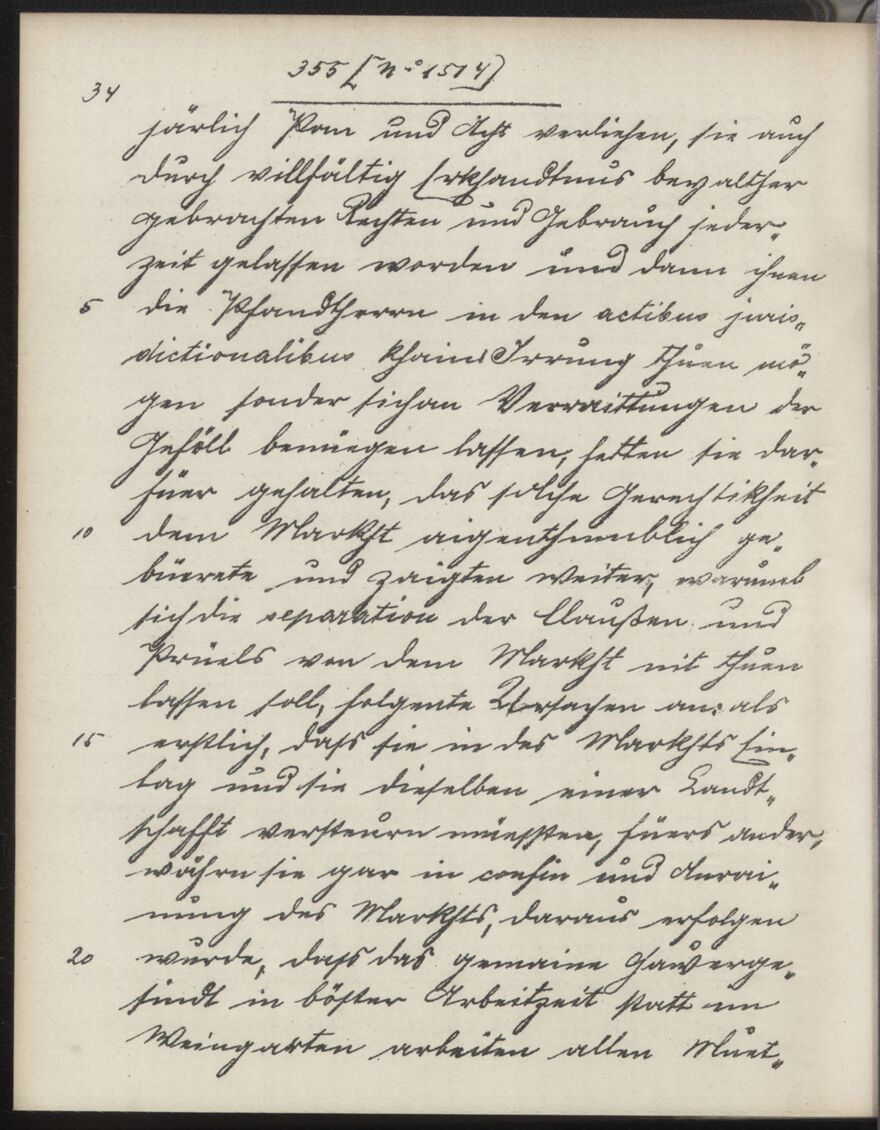 355 [No 1514]
34
järlich Pan und Acht verliehen, sie auch
durch villfältig Erkhandtnus bey althero
gebrachten Rechten und Gebrauch jeder„
zeit gelassen worden und dann ihnen
5 die Pfandtherrn in den actibus juris„
dictionalibus khain Irrung thuen mö„
gen sonder sich an Verraittungen der
Gefäll benüegen lassen, hetten sie dar„
füer gehalten, das solche Gerechtikheit
10 dem Markht aigenthumblich ge„
büerete und zaigten weiter, warumb
sich die separation der Claußen und
Prüels von dem Markht nit thuen
lassen soll, folgente Ursachen an: als
15 erstlich, dass sie in des Markhts Ein„
lag und sie dieselben einer Landt„
schafft versteurn müessten, füers ander,
währn sie gar in confin und Anrai„
nung des Markhts, daraus erfolgen
20 wurde, dass das gemaine Hawerge„
sindt in böster Arbeitzeit statt im
Weingarten arbeiten allen Muet„